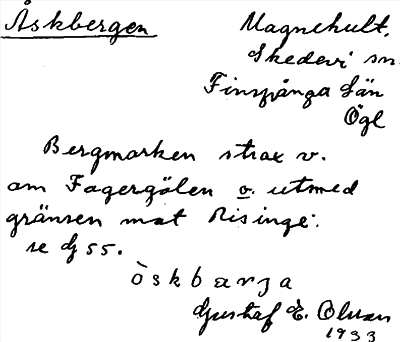 Åskbergen
Magnehult,
Skedevi sn.
Finspånga län
Ögl
Bergmarken strax v.
om Fagergölen o. utmed
gränsen mot Risinge.
se dj 55.
òskbarja
Gustaf E. Olsson
1933